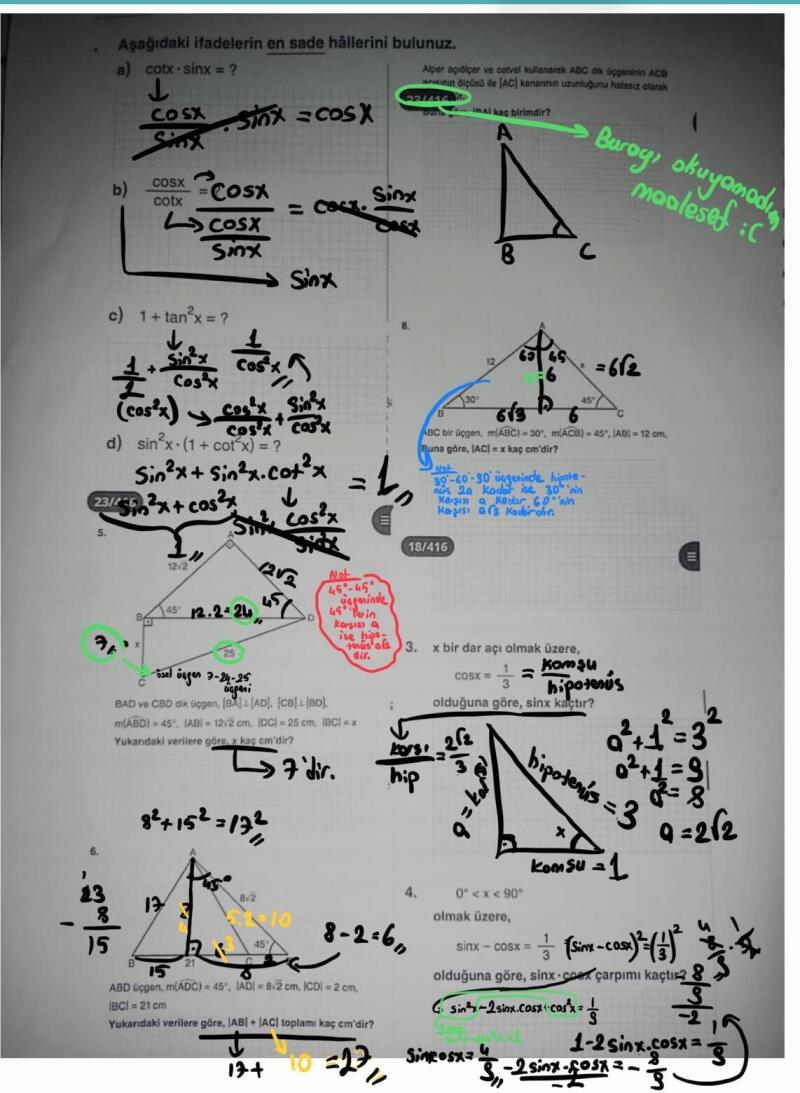 Aşağıdaki ifadelerin en sade hâllerini bulunuz.
a) cotx · sinx = ?
cosx/sinx · sinx = cosx
b) cosx/cotx = cosx/(cosx/sinx) = cosx · sinx/cosx
sinx
c) 1 + tan²x = ?
1/1 + sin²x/cos²x
1/cos²x
(cos²x) → cos²x/cos²x + sin²x/cos²x
d) sin²x · (1 + cot²x) = ?
sin²x + sin²x.cot²x = 1
sin²x + cos²x
sin²x cos²x/sin²x
1
5.
A
12√2
12√2
B
45°
12.2=24
45
D
7
x
25
C
özel üçgen 7-24-25 üçgeni
Not
45°-45°
üçgeninde
45°'lerin
karşısı a
ise hipo-
tenüs a√2
dir.
BAD ve CBD dik üçgen, [BA] ⊥ [AD], [CB] ⊥ [BD],
m(ABD) = 45°, |AB| = 12√2 cm, |DC| = 25 cm, |BC| = x
Yukarıdaki verilere göre, x kaç cm'dir?
7'dir.
8²+15²=17²
6.
23
- 8
15
A
45°
17
8√2
5.2=10
8
45°
B
15
21
C
8
8-2=6
ABD üçgen, m(ADC) = 45°, |AD| = 8√2 cm, |CD| = 2 cm,
|BC| = 21 cm
Yukarıdaki verilere göre, |AB| + |AC| toplamı kaç cm'dir?
17+ 10 = 27
Alper açıölçer ve cetvel kullanarak ABC dik üçgeninin ACB
açısının ölçüsü ile [AC] kenarının uzunluğunu hatasız olarak
23/416
Buna göre, |BA| kaç birimdir?
Burayı okuyamadım
maalesef :(
A
B
C
8.
A
60 45
12
6
x
= 6√2
B
30°
6√3
6
45°
C
ABC bir üçgen, m(ABC) = 30°, m(ACB) = 45°, |AB| = 12 cm,
Buna göre, |AC| = x kaç cm'dir?
Not
30°-60°-90° üçgeninde hipote-
nüs 2a kadar ise 30°'nin
karşısı a kadar 60°'nin
karşısı a√3 kadardır.
18/416
3. x bir dar açı olmak üzere,
cosx = 1/3 = komşu/hipotenüs
olduğuna göre, sinx kaçtır?
karşı/hip = 2√2/3
a = karşı
hipotenüs = 3
x
komşu = 1
a²+1²=3²
a²+1=9
a²=8
a=2√2
4. 0° < x < 90°
olmak üzere,
sinx – cosx = 1/3 (sinx-cosx)²=(1/3)²
olduğuna göre, sinx · cosx çarpımı kaçtır?
sin²x-2sinx.cosx+cos²x=1/9
1-2sinx.cosx=1/9
sinxcosx=4/9
-2sinx.cosx/-2 = -8/9